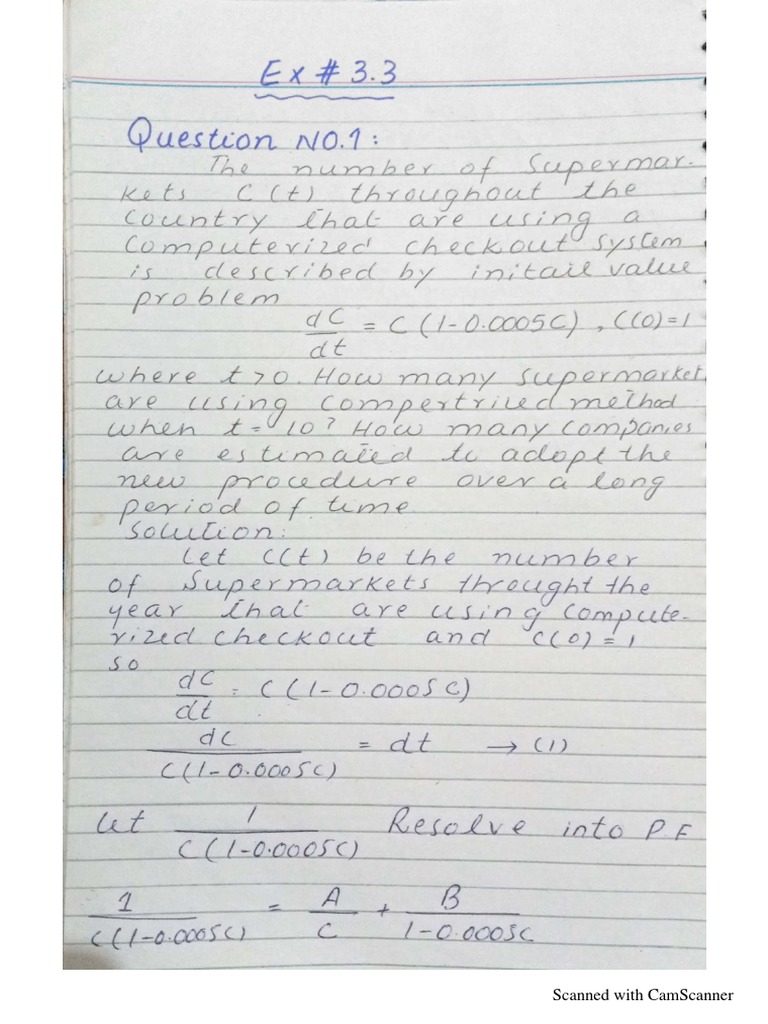 Ex # 3.3
Question NO.1:
The number of Supermar-
kets C(t) throughout the
country that are using a
computerized checkout system
is described by initail value
problem
dC/dt = C(1-0.0005C), C(0)=1
where t>0. How many supermarket
are using compertrized method
when t = 10? How many companies
are estimated to adopt the
new procedure over a long
period of time
Solution:
Let C(t) be the number
of Supermarkets throught the
year that are using compute-
rized checkout and C(0)=1
so
dC/dt = C(1-0.0005C)
dC/C(1-0.0005C) = dt → (1)
Let 1/C(1-0.0005C) Resolve into P.F
1/C(1-0.0005C) = A/C + B/1-0.0005C
Scanned with CamScanner